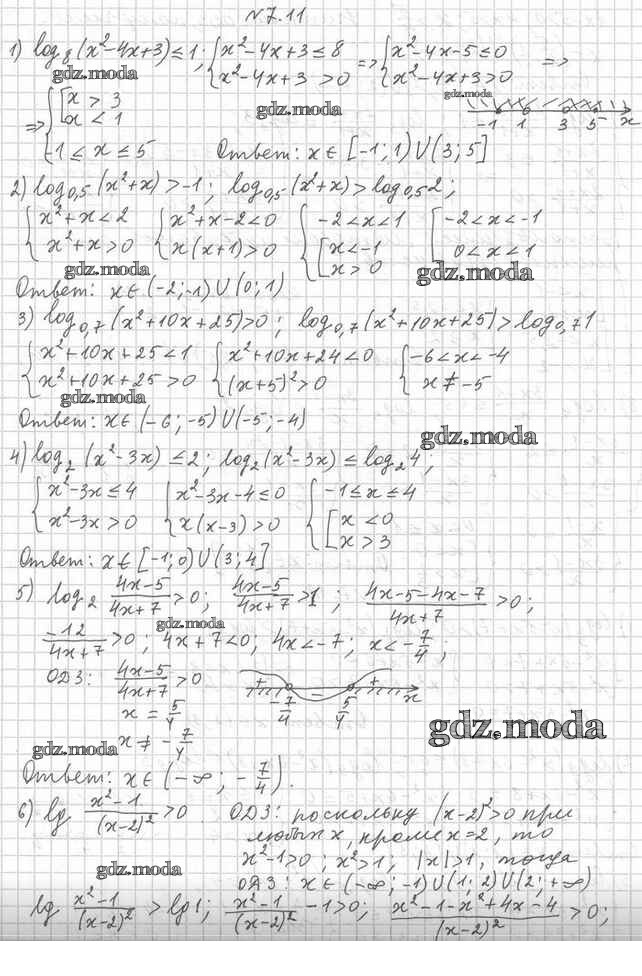 №7.11
1) log₈(x²-4x+3)≤1; {x²-4x+3≤8 => {x²-4x-5≤0 =>
{x²-4x+3 >0 {x²-4x+3>0
gdz.moda gdz.moda gdz.moda
=> {[x > 3
[x < 1
-1 1 3 5 x
{-1 ≤ x ≤ 5 Ответ: x∈[-1;1)∪(3;5]
2) log₀,₅(x²+x)>-1; log₀,₅(x²+x)>log₀,₅2;
{x²+x<2 {x²+x-2<0 {-2<x<1 [-2<x<-1
{x²+x>0 {x(x+1)>0 {[x<-1 [0<x<1
[x>0
gdz.moda gdz.moda
Ответ: x∈(-2;-1)∪(0;1)
3) log₀,₇(x²+10x+25)>0; log₀,₇(x²+10x+25)>log₀,₇1
{x²+10x+25<1 {x²+10x+24<0 {-6<x<-4
{x²+10x+25>0 {(x+5)²>0 {x≠-5
gdz.moda
Ответ: x∈(-6;-5)∪(-5;-4)
gdz.moda
4) log₂(x²-3x)≤2; log₂(x²-3x)≤log₂4;
{x²-3x≤4 {x²-3x-4≤0 {-1≤x≤4
{x²-3x>0 {x(x-3)>0 {[x<0
[x>3
Ответ: x∈[-1;0)∪(3;4]
5) log₂ (4x-5)/(4x+7)>0; (4x-5)/(4x+7)>1; (4x-5-4x-7)/(4x+7)>0;
gdz.moda
-12/(4x+7)>0; 4x+7<0; 4x<-7; x<-7/4;
ОДЗ: (4x-5)/(4x+7)>0 + - + x
x = 5/4 -7/4 5/4
x ≠ -7/4
gdz.moda gdz.moda
Ответ: x∈(-∞; -7/4).
6) lg (x²-1)/(x-2)²>0 ОДЗ: поскольку (x-2)²>0 при
любых x, кроме x=2, то
x²-1>0; x²>1; |x|>1, тогда
gdz.moda
ОДЗ: x∈(-∞;-1)∪(1;2)∪(2;+∞)
lg (x²-1)/(x-2)² > lg1; (x²-1)/(x-2)² -1>0; (x²-1-x²+4x-4)/(x-2)²>0;